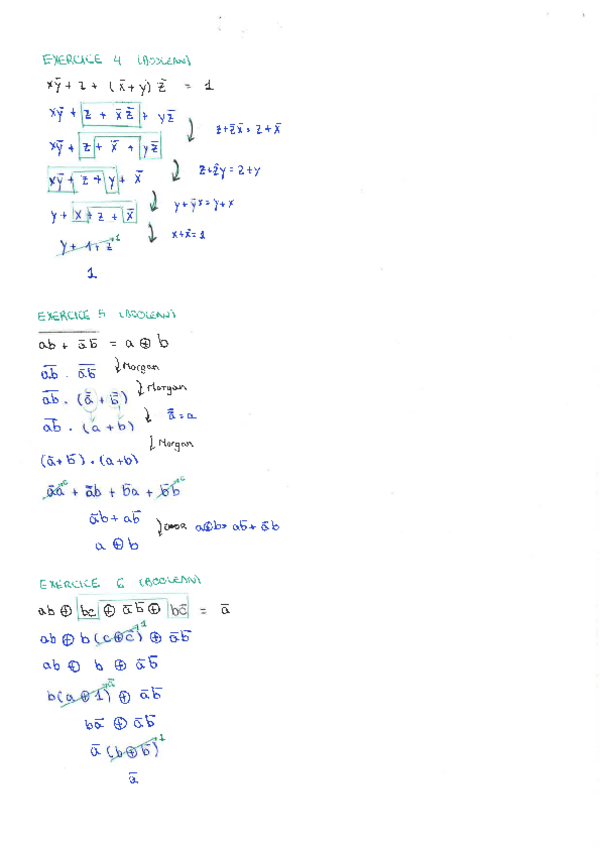 EXERCICE 4 (BOOLEAN)
xȳ + z + (x̄+y) z̄ = 1
xȳ + z + x̄z̄ + yz̄
z+z̄x̄ = z+x̄
xȳ + z + x̄ + yz̄
z+z̄y = z+y
xȳ + z + y + x̄
y+ȳx = y+x
y + x + z + x̄
x+x̄ = 1
y + 1 + z 1
1
EXERCICE 5 (BOOLEAN)
\overline{ab + āb̄} = a ⊕ b
\overline{ab} . \overline{āb̄} Morgan
\overline{ab} . (a̿ + b̿) Morgan
\overline{ab} . (a + b) a̿ = a
(ā+b̄) . (a+b) Morgan
āa + āb + b̄a + b̄b
āb + ab̄
a⊕b = ab̄ + āb
a ⊕ b
EXERCICE 6 (BOOLEAN)
ab ⊕ bc ⊕ āb̄ ⊕ bc̄ = ā
ab ⊕ b(c⊕c̄) 1 ⊕ āb̄
ab ⊕ b ⊕ āb̄
b(a⊕1) ā ⊕ āb̄
bā ⊕ āb̄
ā(b⊕b̄) 1
ā